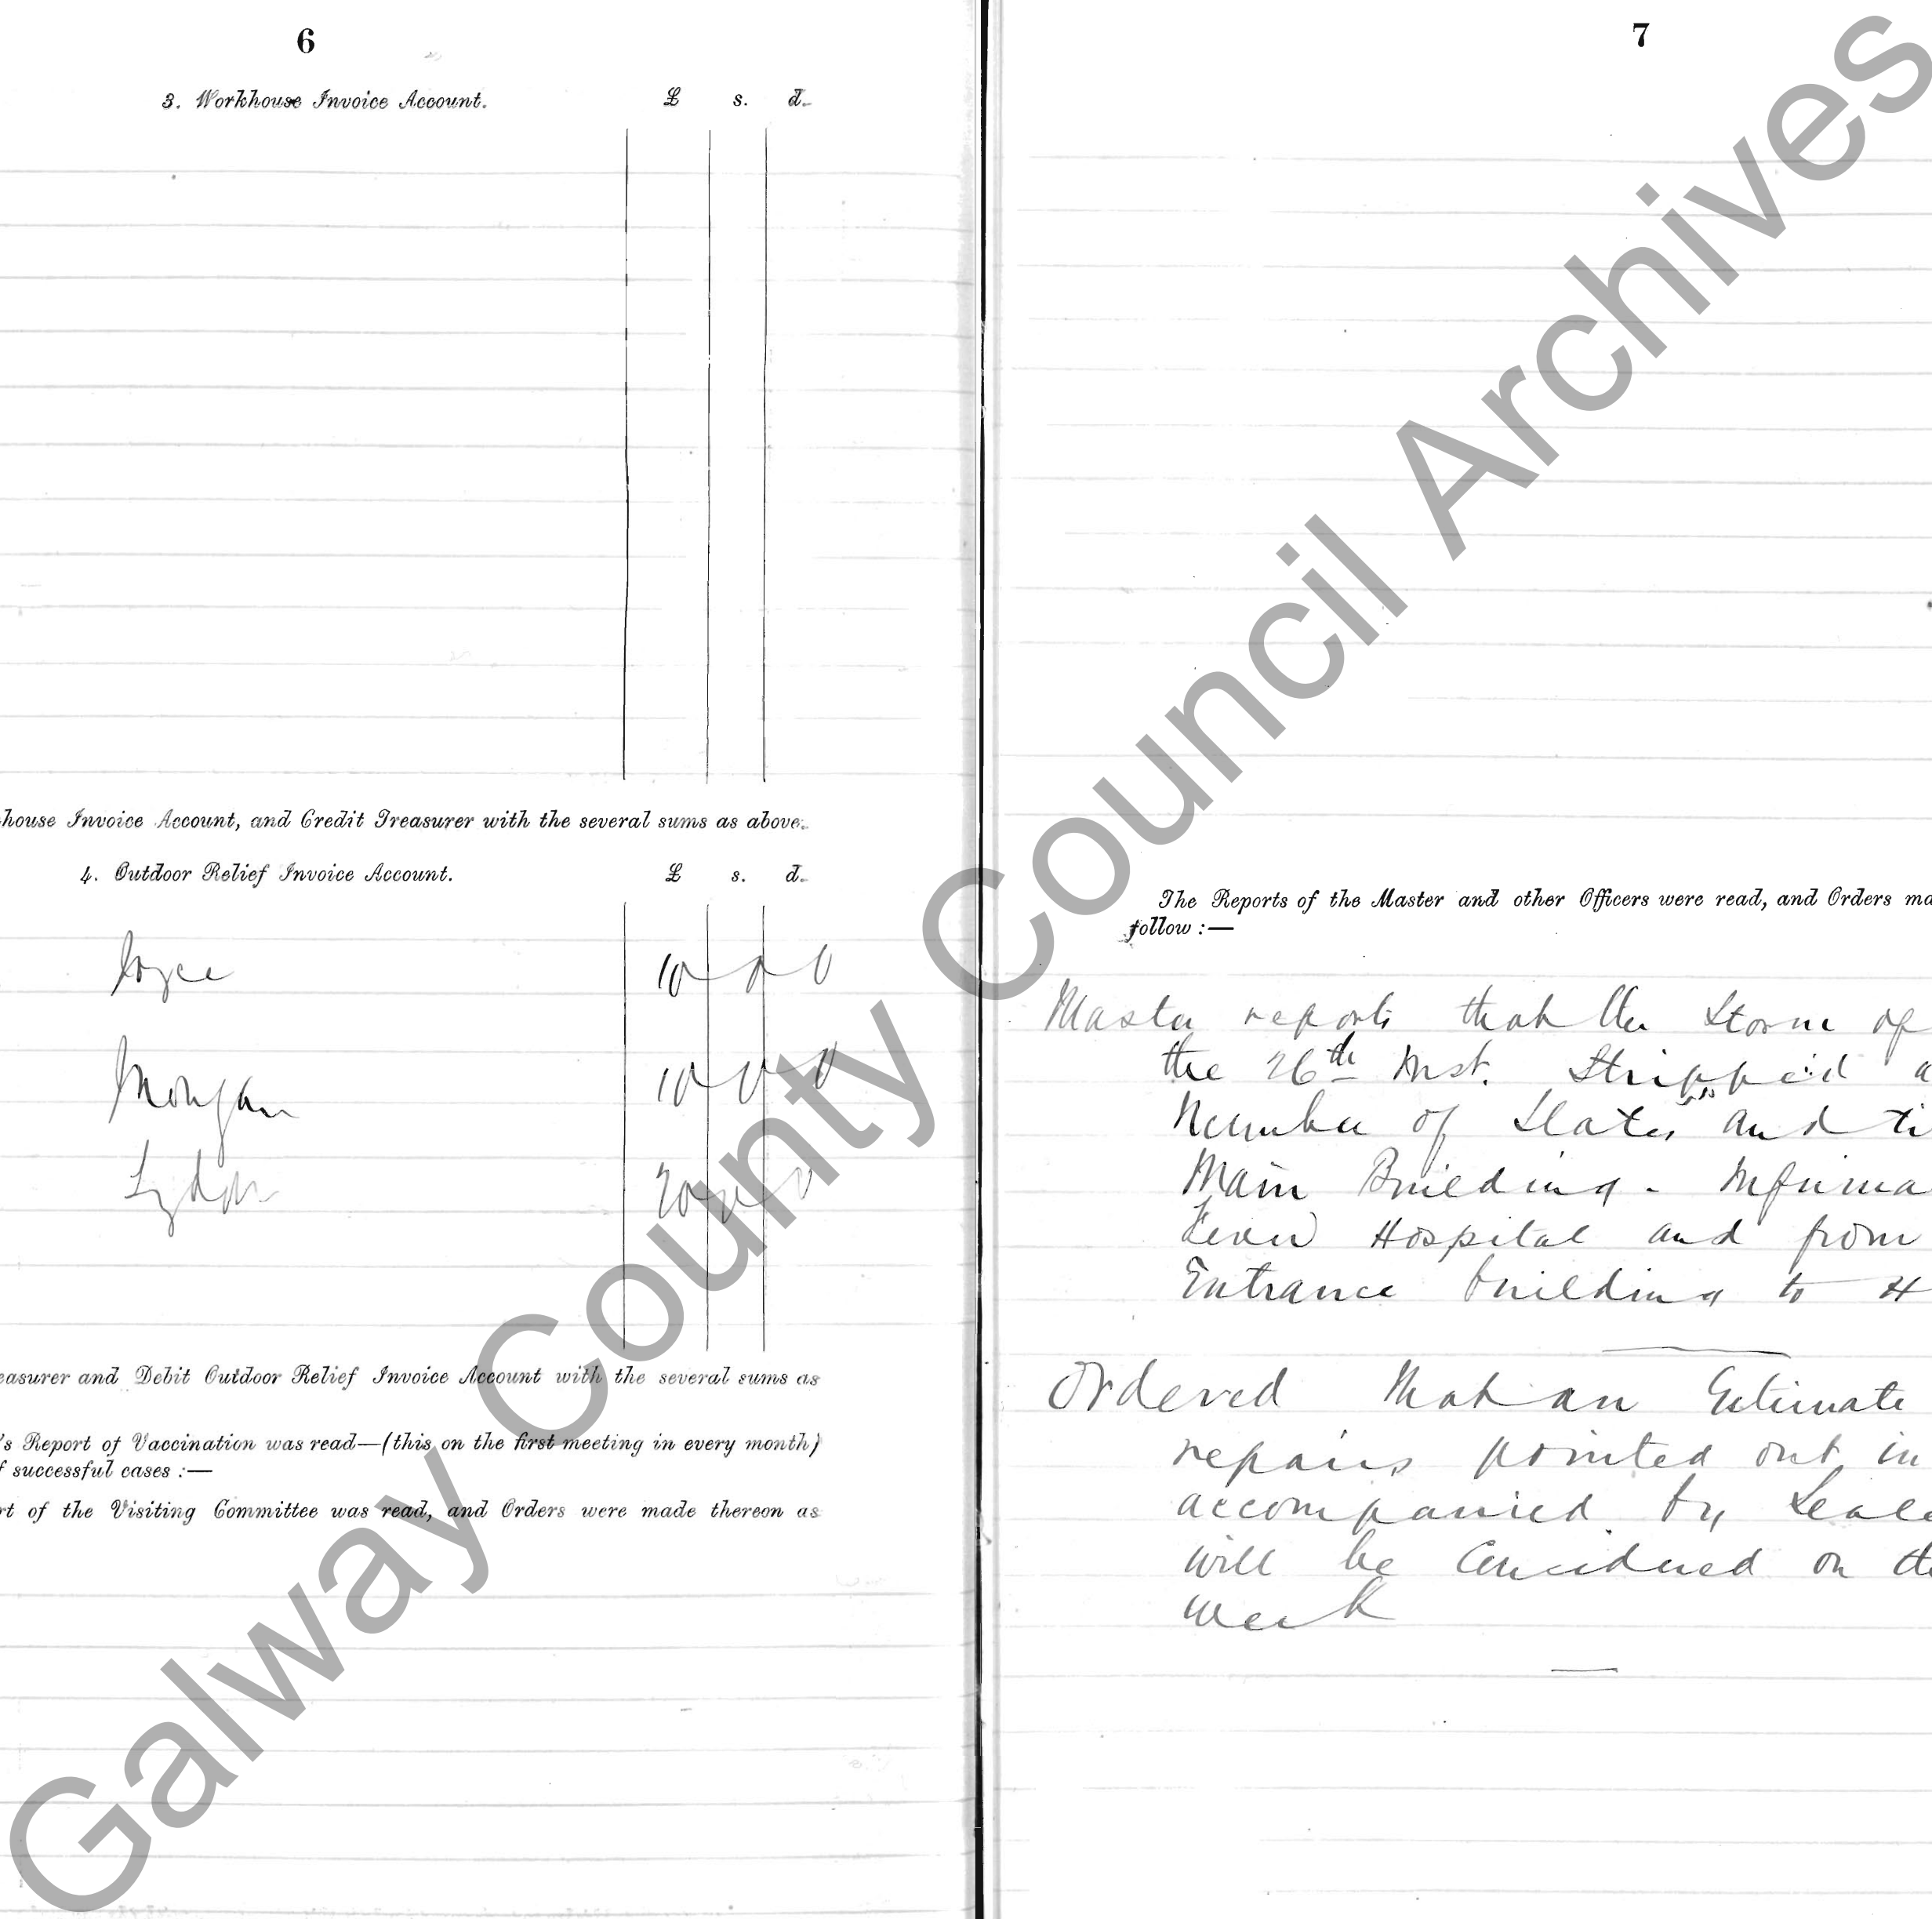 6
3. Workhouse Invoice Account. £ s. d.
house Invoice Account, and Credit Treasurer with the several sums as above.
4. Outdoor Relief Invoice Account. £ s. d.
Joyce 10 0 0
Mongan 10 0 0
Lydon 20 0 0
easurer and Debit Outdoor Relief Invoice Account with the several sums as
's Report of Vaccination was read—(this on the first meeting in every month)
f successful cases :—
rt of the Visiting Committee was read, and Orders were made thereon as
7
The Reports of the Master and other Officers were read, and Orders ma
follow :—
Master reports that the Storm of
the 26th Inst. Stripped a
Number of Slates and ti
Main Building - Infirma
Fever Hospital and from
Entrance building to H
Ordered that an Estimate
repairs pointed out in
accompanied by Seale
will be Considered on th
week
Galway County Council Archives